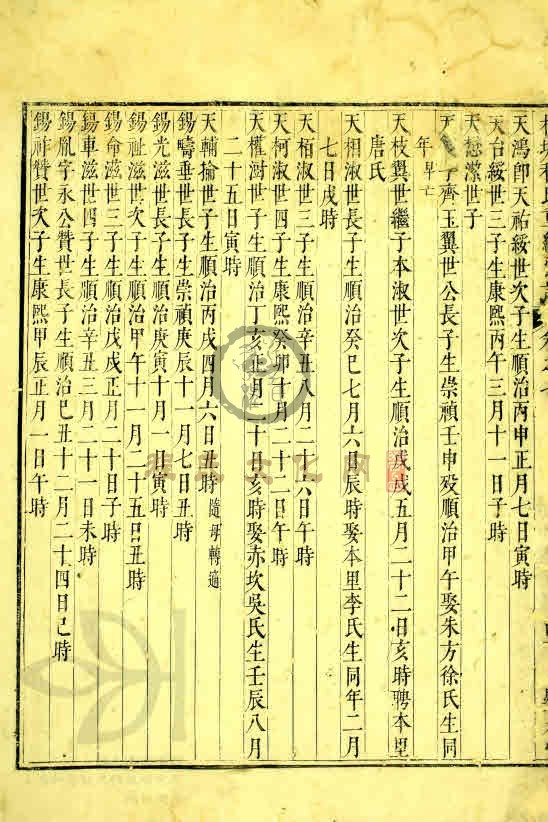 天鴻郎天祐綏世次子生順治丙申正月七日寅時
天台綏世三子生康熙丙午三月十一日子時
天 潔世子
齊玉翼世公長子生崇禎壬申歿順治甲午娶朱方徐氏生同
年早亡
天枝翼世繼子本淑世次子生順治戊戌五月二十二日亥時聘本里
唐氏
天相淑世長子生順治癸巳七月六日辰時娶本里李氏生同年二月
七日戌時
天栢淑世三子生順治辛丑八月二十六日午時
天柯淑世四子生康熙癸卯十月二十二日午時
天權澍世子生順治丁亥正月二十日亥時娶赤坎吳氏生壬辰八月
二十五日寅時
天輔掄世子生順治丙戌四月六日丑時 隨母轉適
錫疇垂世長子生崇禎庚辰十一月七日丑時
錫光滋世長子生順治庚寅十月一日寅時
錫祉滋世次子生順治甲午十一月二十五日丑時
錫命滋世三子生順治戊戌正月二十日子時
錫車滋世四子生順治辛丑三月二十一日未時
錫胤字永公贊世長子生順治己丑十二月二十四日己時
錫祚贊世次子生康熙甲辰正月一日午時